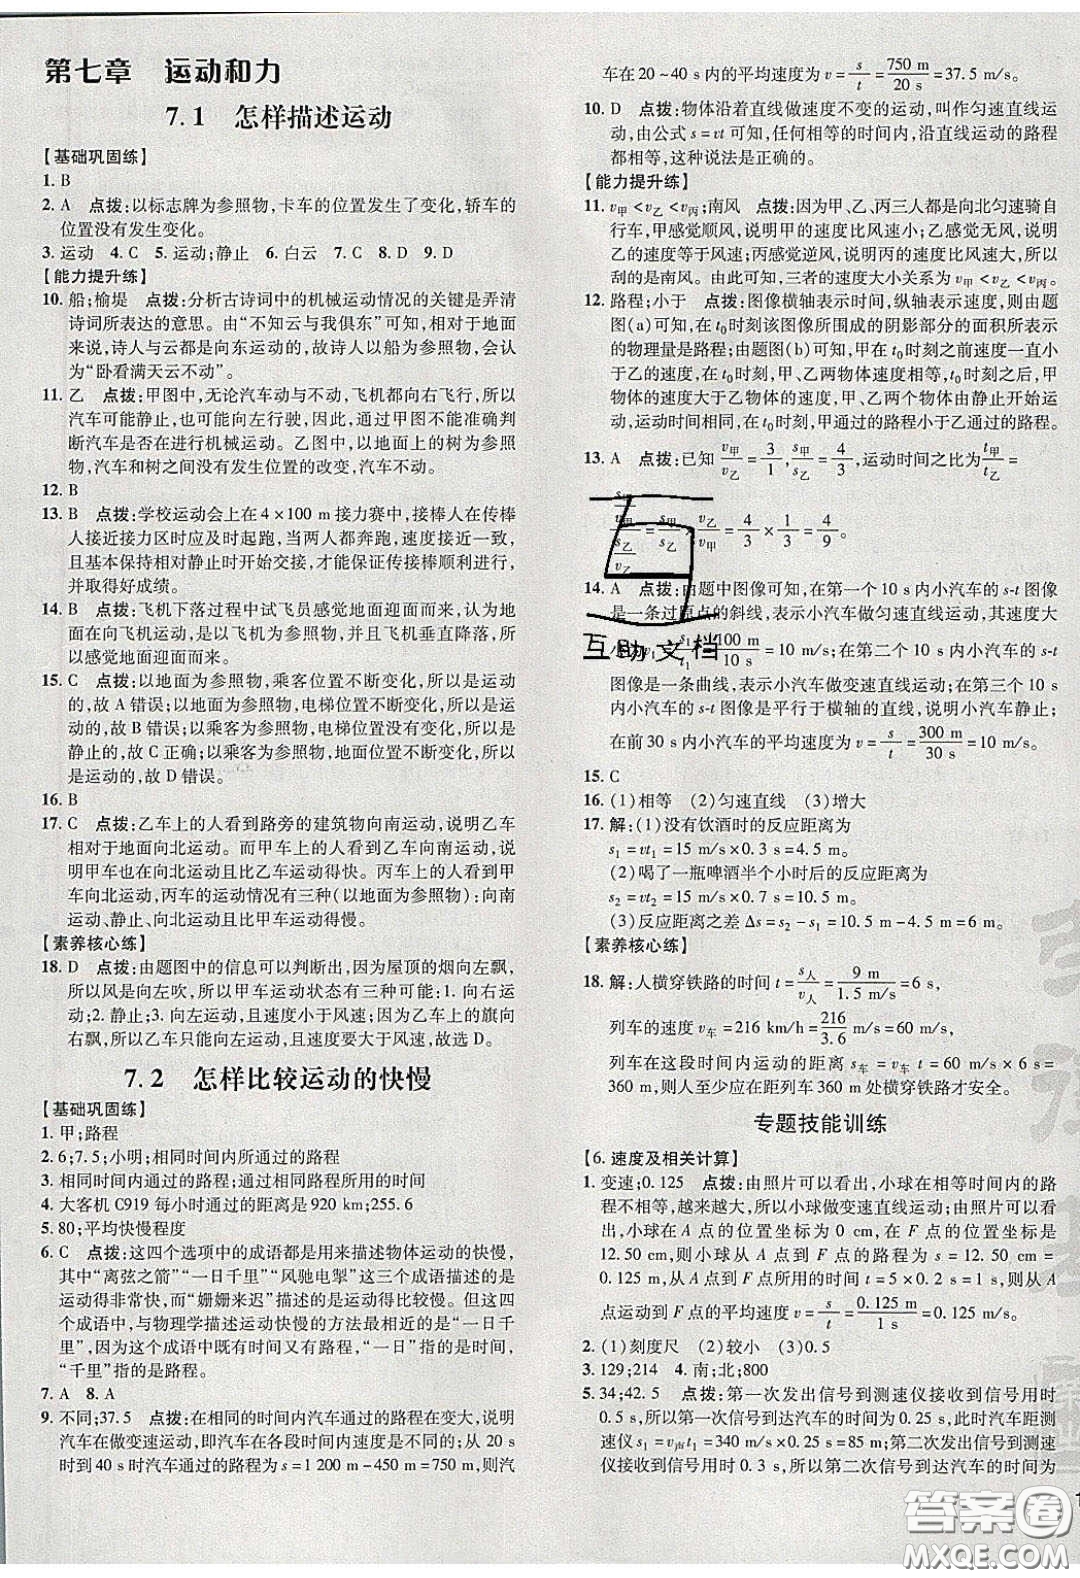 第七章　运动和力
7.1　怎样描述运动
【基础巩固练】
1. B
2. A　点拨:以标志牌为参照物,卡车的位置发生了变化,轿车的
位置没有发生变化。
3. 运动　4. C　5. 运动;静止　6. 白云　7. C　8. D　9. D
【能力提升练】
10. 船;榆堤　点拨:分析古诗词中的机械运动情况的关键是弄清
诗词所表达的意思。由“不知云与我俱东”可知,相对于地面
来说,诗人与云都是向东运动的,故诗人以船为参照物,会认
为“卧看满天云不动”。
11. 乙　点拨:甲图中,无论汽车动与不动,飞机都向右飞行,所以
汽车可能静止,也可能向左行驶,因此,通过甲图不能准确判
断汽车是否在进行机械运动。乙图中,以地面上的树为参照
物,汽车和树之间没有发生位置的改变,汽车不动。
12. B
13. B　点拨:学校运动会上在 4×100 m接力赛中,接棒人在传棒
人接近接力区时应及时起跑,当两人都奔跑,速度接近一致,
且基本保持相对静止时开始交接,才能保证传接棒顺利进行,
并取得好成绩。
14. B　点拨:飞机下落过程中试飞员感觉地面迎面而来,认为地
面在向飞机运动,是以飞机为参照物,并且飞机垂直降落,所
以感觉地面迎面而来。
15. C　点拨:以地面为参照物,乘客位置不断变化,所以是运动
的,故 A 错误;以地面为参照物,电梯位置不断变化,所以是运
动的,故 B 错误;以乘客为参照物,电梯位置没有变化,所以是
静止的,故 C 正确;以乘客为参照物,地面位置不断变化,所以
是运动的,故 D 错误。
16. B
17. C　点拨:乙车上的人看到路旁的建筑物向南运动,说明乙车
相对于地面是向北运动。而甲车上的人看到乙车向南运动,说明
甲车向北运动且比乙车运动得快。丙车上的人看到甲
车向北运动,丙车的运动情况有三种(以地面为参照物):向南
运动、静止、向北运动且比甲车运动得慢。
【素养核心练】
18. D　点拨:由题图中的信息可以判断出,因为屋顶的烟向左飘,
所以风是向左吹,所以甲车运动状态有三种可能:1. 向右运
动;2. 静止;3. 向左运动,且速度小于风速;因为乙车上的旗向
右飘,所以乙车在向左运动,且速度要大于风速,故选 D。
7.2　怎样比较运动的快慢
【基础巩固练】
1. 甲;路程
2. 6;7.5;小明;相同时间内所通过的路程
3. 相同时间内通过的路程;通过相同路程所用的时间
4. 大客机 C919 每小时通过的距离是 920 km;255.6
5. 80;平均快慢程度
6. C　点拨:这四个选项中的成语都是用来描述物体运动的快慢,
其中“离弦之箭”“一日千里”“风驰电掣”这三个成语描述的是
运动得非常快,而“姗姗来迟”描述的是运动得比较慢。但这四
个成语中,与物理学描述运动快慢的方法最相近的是“一日千
里”。因为这个成语中既有时间又有路程,“一日”指的是时间,
“千里”指的是路程。
7. A　8. A
9. 不同;37.5　点拨:在相同的时间内汽车通过的路程不同,说明
汽车在做变速运动,即汽车在各段时间内速度是不同的;从 20 s
时到40 s时汽车通过的路程为 s=1 200 m-450 m=750 m,则汽
车在 20~40 s 内的平均速度为 v=s/t=750 m/20 s=37.5 m/s。
10. D　点拨:物体沿着直线做速度不变的运动,叫作匀速直线运
动,由公式 s=vt 可知,任何相等的时间内,沿直线运动的路程
都相等,这种说法是正确的。
【能力提升练】
11. v甲<v乙<v丙;南风　点拨:因为甲、乙、丙三人都是向北匀速骑
自行车,甲感觉顺风,说明甲的速度比风速小;乙感觉无风,说明
乙的速度等于风速;丙感觉逆风,说明丙的速度大于风速,所以
刮的是南风。由此可知,三者的速度大小关系为 v甲<v乙<v丙。
12. 路程;小于　点拨:图像横轴表示时间,纵轴表示速度,则由题
图(a)可知,在 t0时刻该图像所围成的阴影部分的面积所表示
的物理量是路程;由题图(b)可知,在 t0时刻之前甲速度一直小
于乙的速度,在t0时刻,甲、乙两物体速度相等,t0时刻之后,甲
物体的速度大于乙物体的速度,甲、乙两个物体由静止开始运
动,运动时间相同,在t0时刻,甲通过的路程小于乙通过的路程。
13. A　点拨:已知 v甲/v乙=3/1,s甲/s乙=4/3,运动时间之比为t甲/t乙=
s甲/v甲/s乙/v乙=s甲/s乙×v乙/v甲=4/3×1/3=4/9。
14. A　点拨:由题中图像可知,在第一个 10 s内小汽车的s-t 图像
是一条过原点的斜线,表示小汽车做匀速直线运动,其速度大
小为v1=s1/t1=100 m/10 s=10 m/s;在第二个10 s内小汽车的 s-t
图像是一条曲线,表示小汽车做变速直线运动;在第三个 10 s
内小汽车的 s-t 图像是平行于横轴的直线,说明小汽车静止;
在前 30 s 内小汽车的平均速度为 v=s/t=300 m/30 s=10 m/s。
15. C
16. (1)相等　(2)匀速直线　(3)增大
17. 解:(1)没有饮酒时的反应距离为
s1=vt1=15 m/s×0.3 s=4.5 m。
(2)喝了一瓶啤酒半个小时后的反应距离为
s2=vt2=15 m/s×0.7 s=10.5 m。
(3)反应距离之差 Δs=s2-s1=10.5 m-4.5 m=6 m。
【素养核心练】
18. 解:人横穿铁路的时间 t=s人/v人=9 m/1.5 m/s=6 s,
列车的速度 v车=216 km/h=216/3.6 m/s=60 m/s,
列车在这段时间内运动的距离 s车=v车 t=60 m/s×6 s=
360 m,则此人至少应在距列车 360 m 处横穿铁路才安全。
专题技能训练
【6. 速度及相关计算】
1. 变速;0.125　点拨:由照片可以看出,小球在相等时间内的路
程不相等,越来越大,所以小球做变速直线运动;由照片可以看
出,小球在 A 点的位置坐标为 0 cm,在 F 点的位置坐标为
12.50 cm,则小球从 A 点到 F 点的路程为 s=12.50 cm=
0.125 m;小球从A点到F点所用的时间 t=5×0.2 s=1 s,则从A
点运动到 F点的平均速度 v=s/t=0.125 m/1 s=0.125 m/s。
2. (1)刻度尺　(2)较小　(3)大
3. 129;214　4. 南;北;800
5. 34;42.5　点拨:第一次发出信号到测速仪接收到信号用时
0.5 s,所以第一次信号到达汽车的时间为0.25 s,此时汽车距测
速仪 s1=v声t1=340 m/s×0.25 s=85 m;第二次发出信号到测速
仪接收到信号用时 0.3 s,所以第二次信号到达汽车的时间为
互助文档
答案圈
MXQE.COM